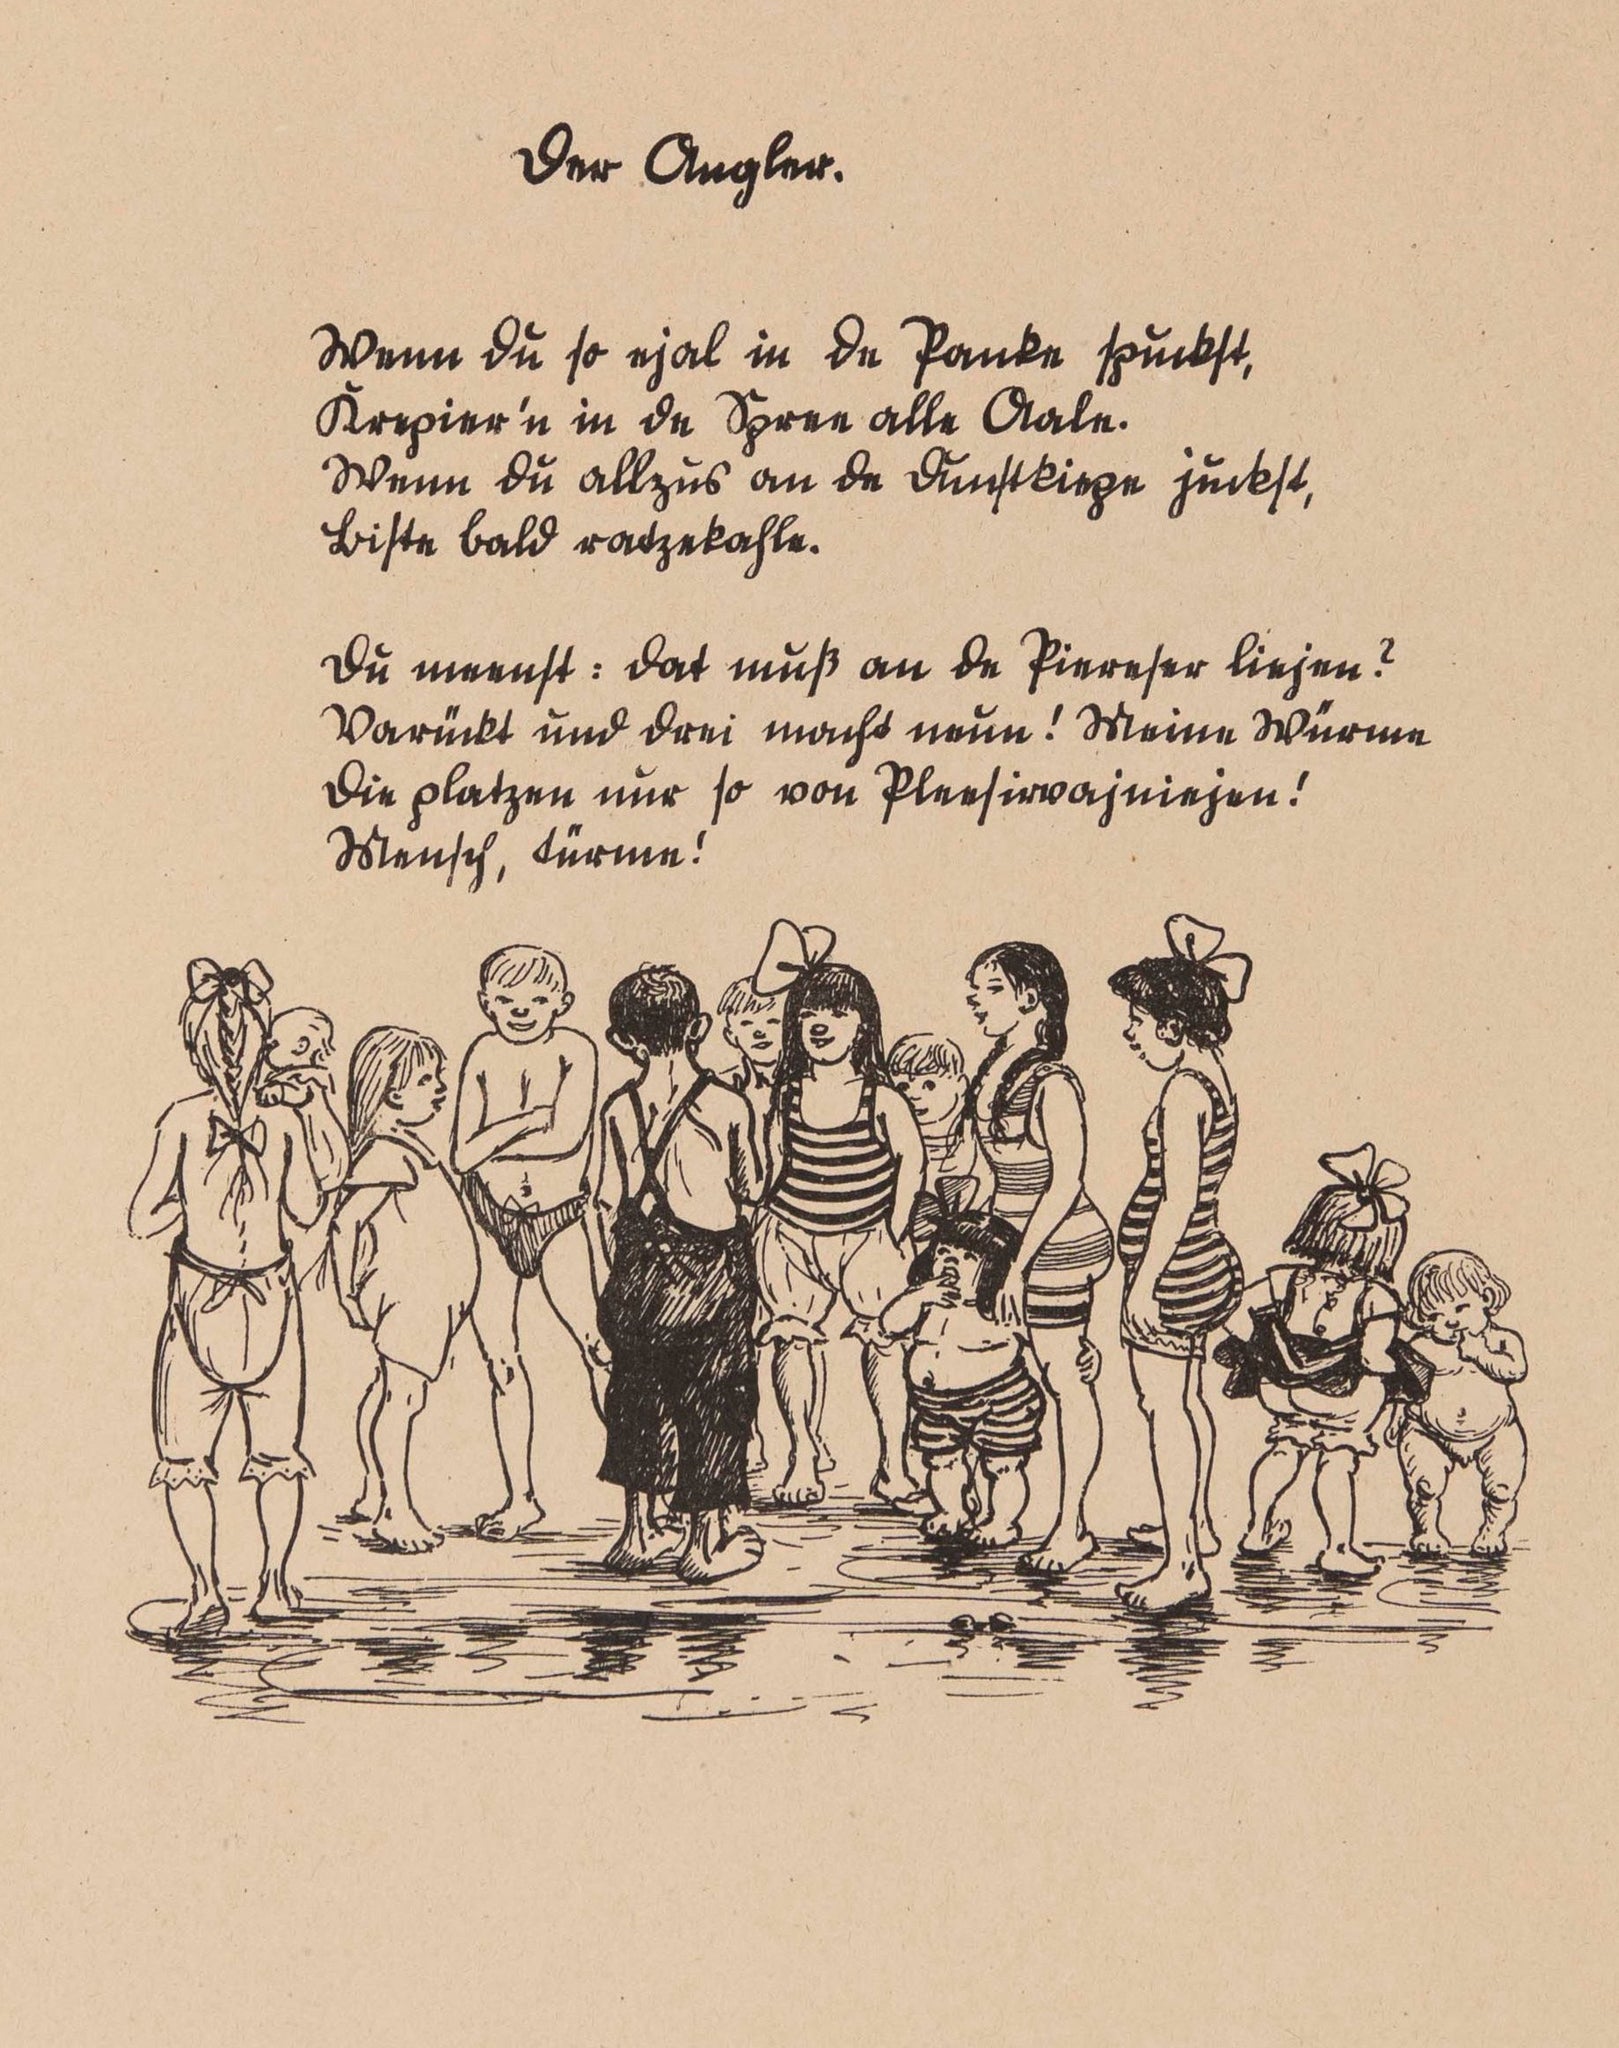 Der Angler.
Wenn du so ejal in de Panke spuckst,
Krepier'n in de Spree alle Aale.
Wenn du allzus an de Dunstkiepe juckst,
Biste bald ratzekahle.
Du meenst: dat muß an de Piereser liejen?
Varückt und drei macht neun! Meine Würme
Die platzen nur so von Pleesirvajniejen!
Mensch, türme!